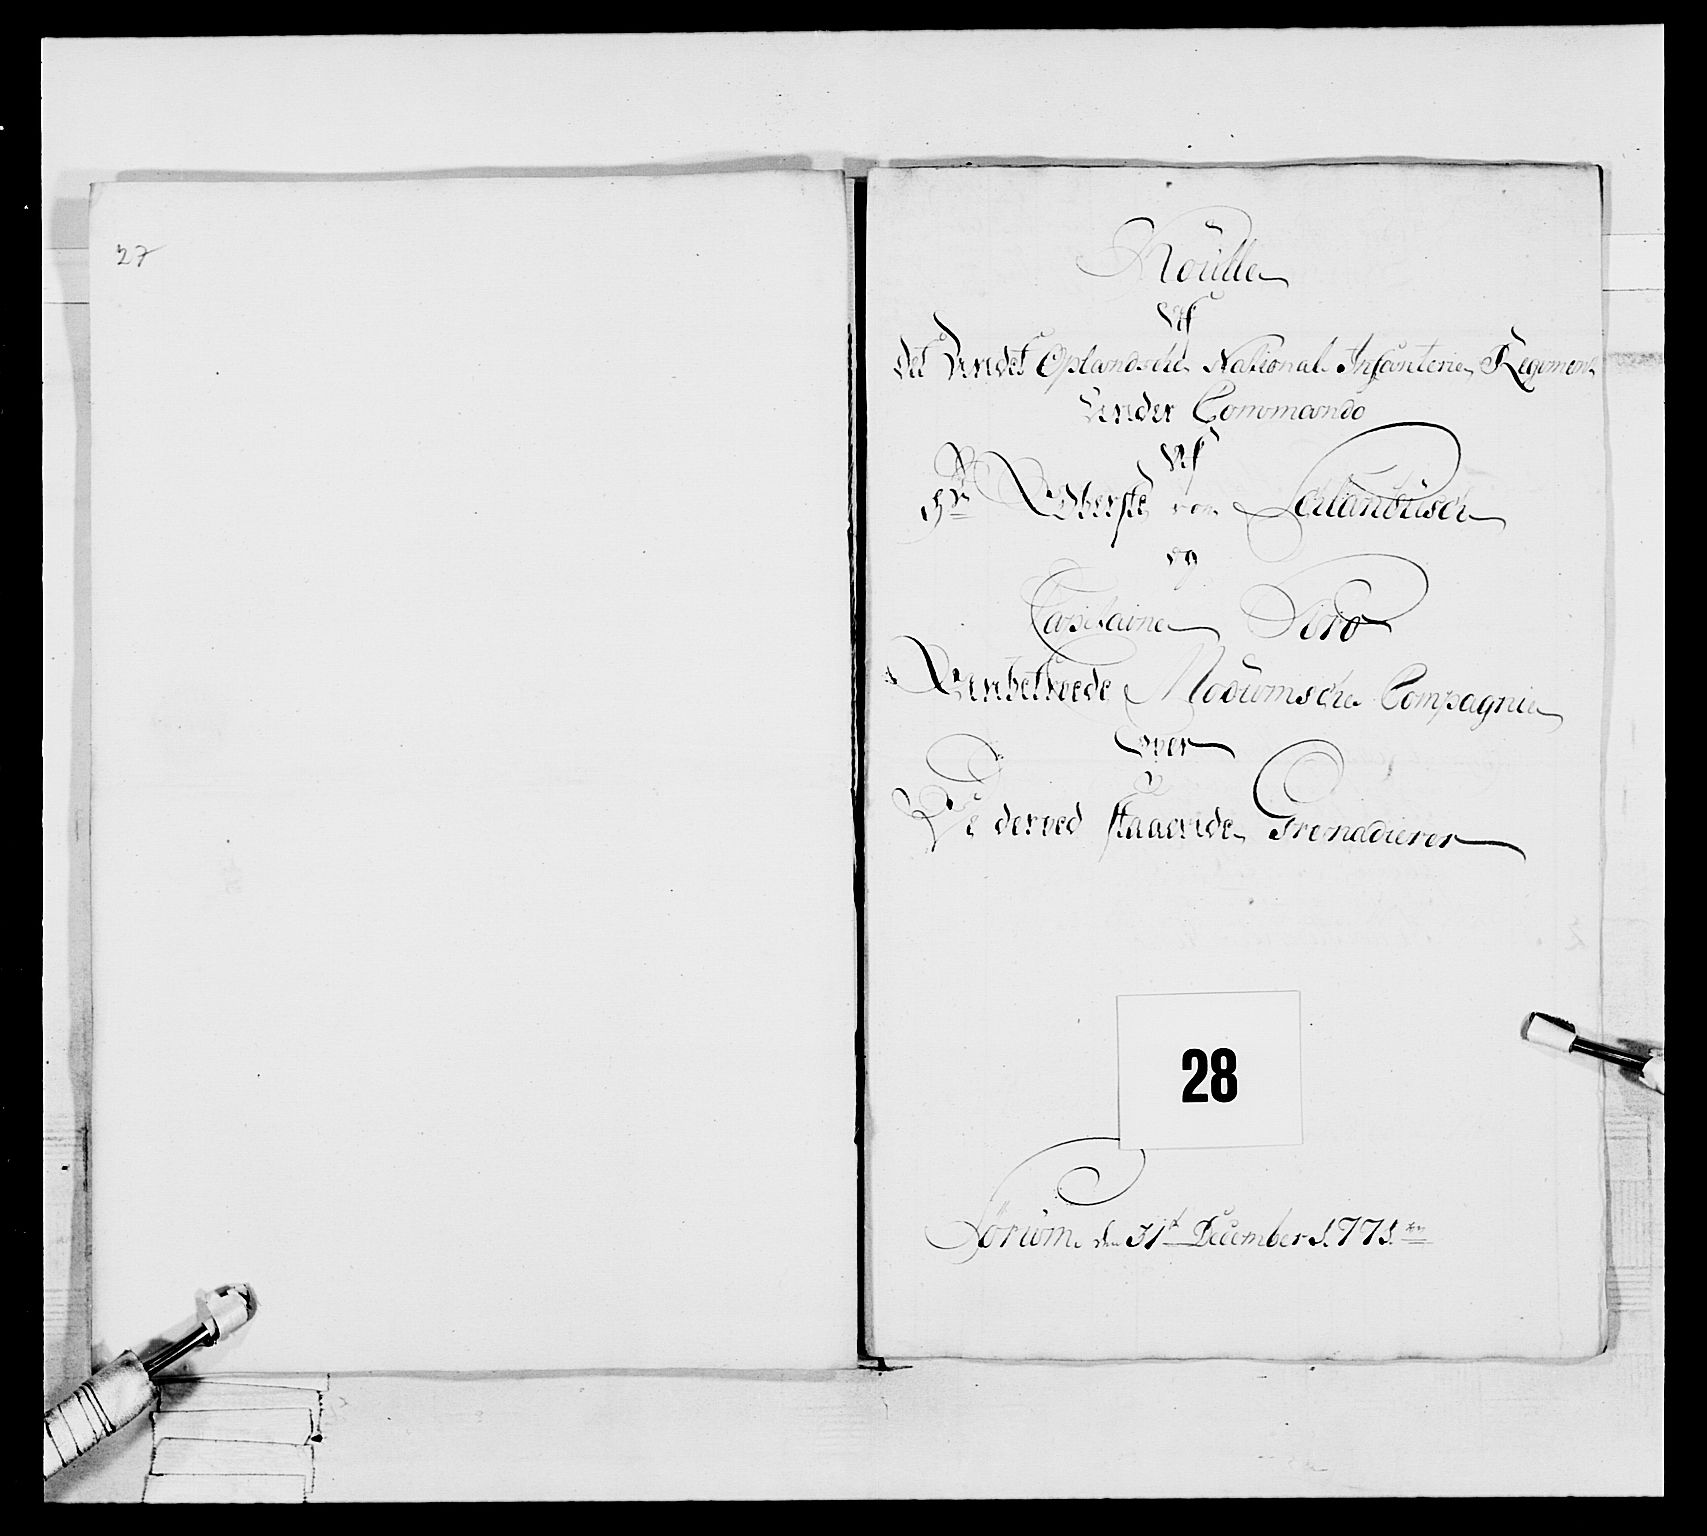 27
Roulle
Af
det Andet Oplandsche National Infanterie Regiment
Under Commando
Af
Hr Oberste von Schlanbusch
og
Capitaine
Anbetroede Modumsche Compagnie
over
De derved staaende Grenaderer
28
den 31te December 1771